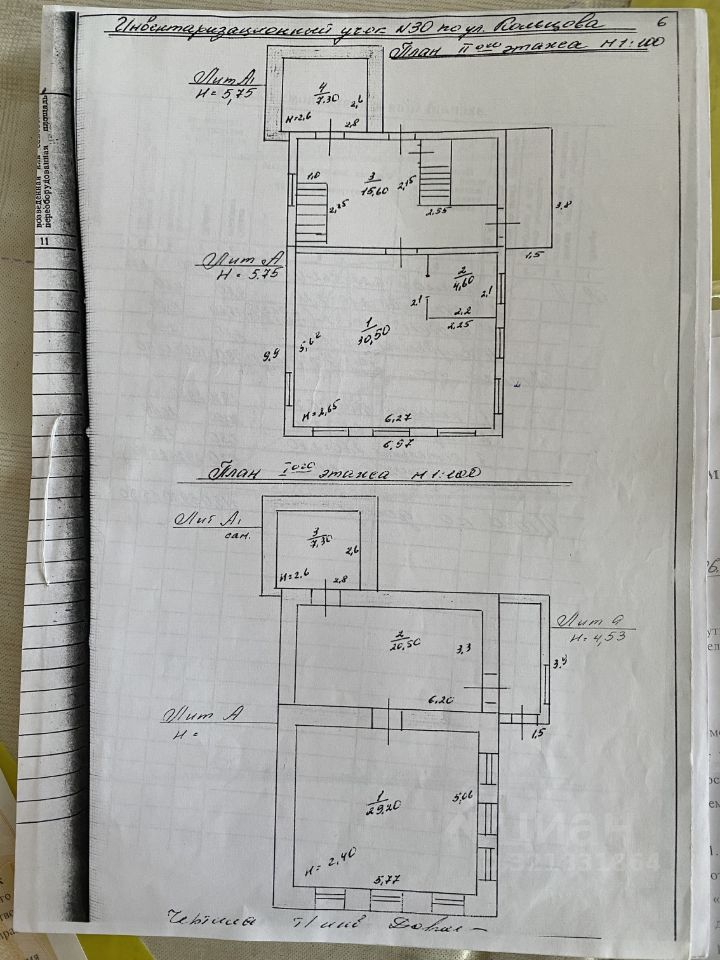 Инвентаризационный учок N30 по ул. Кольцова
6
План IIого этажа М 1:100
Лит А1
Н = 5,75
4
7,30
2,6
Н=2,6
2,8
возведенная или
переоборудованная площадь
11
1,0
3
15,60
2,15
2,55
3,8
1,5
Лит А
Н = 5,75
2
4,60
2,1
2,1
2,2
2,25
1
30,50
9,9
Н=2,65
6,27
6,97
План Iого этажа М 1:100
Лит А1
сам.
3
7,30
2,6
Н=2,6
2,8
Лит а
Н=4,53
2
20,50
3,3
6,20
1,5
Лит А
Н =
1
29,20
5,06
Н= 2,40
5,77
циан
Чертила